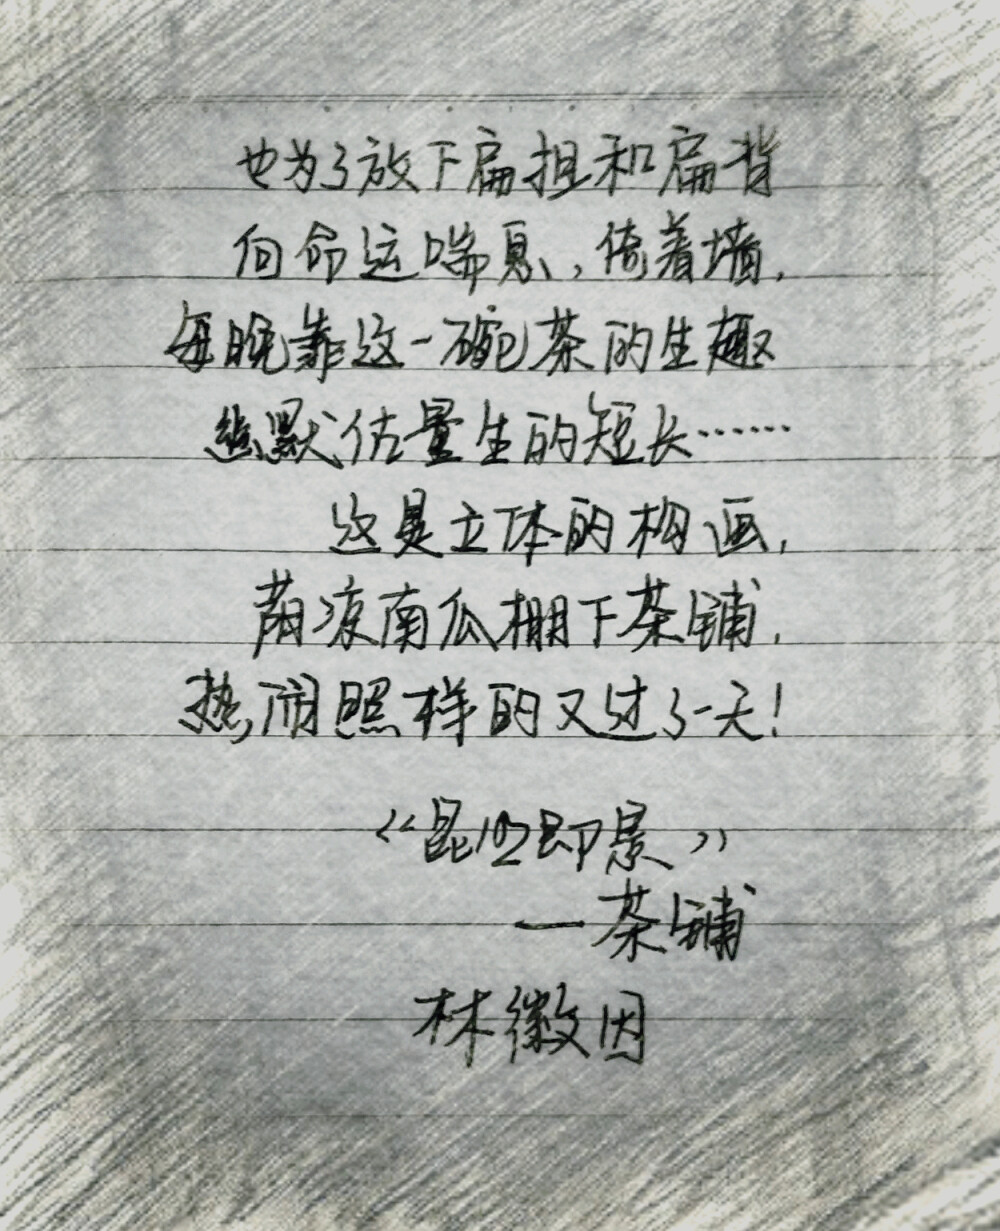 也为了放下扁担和扁背
向命运喘息,倚着墙,
每晚靠这一碗茶的生趣
幽默估量生的短长……
这是立体的构画,
荫凉南瓜棚下茶铺,
热闹照样的又过了一天!
《昆明即景》
—茶铺
林徽因